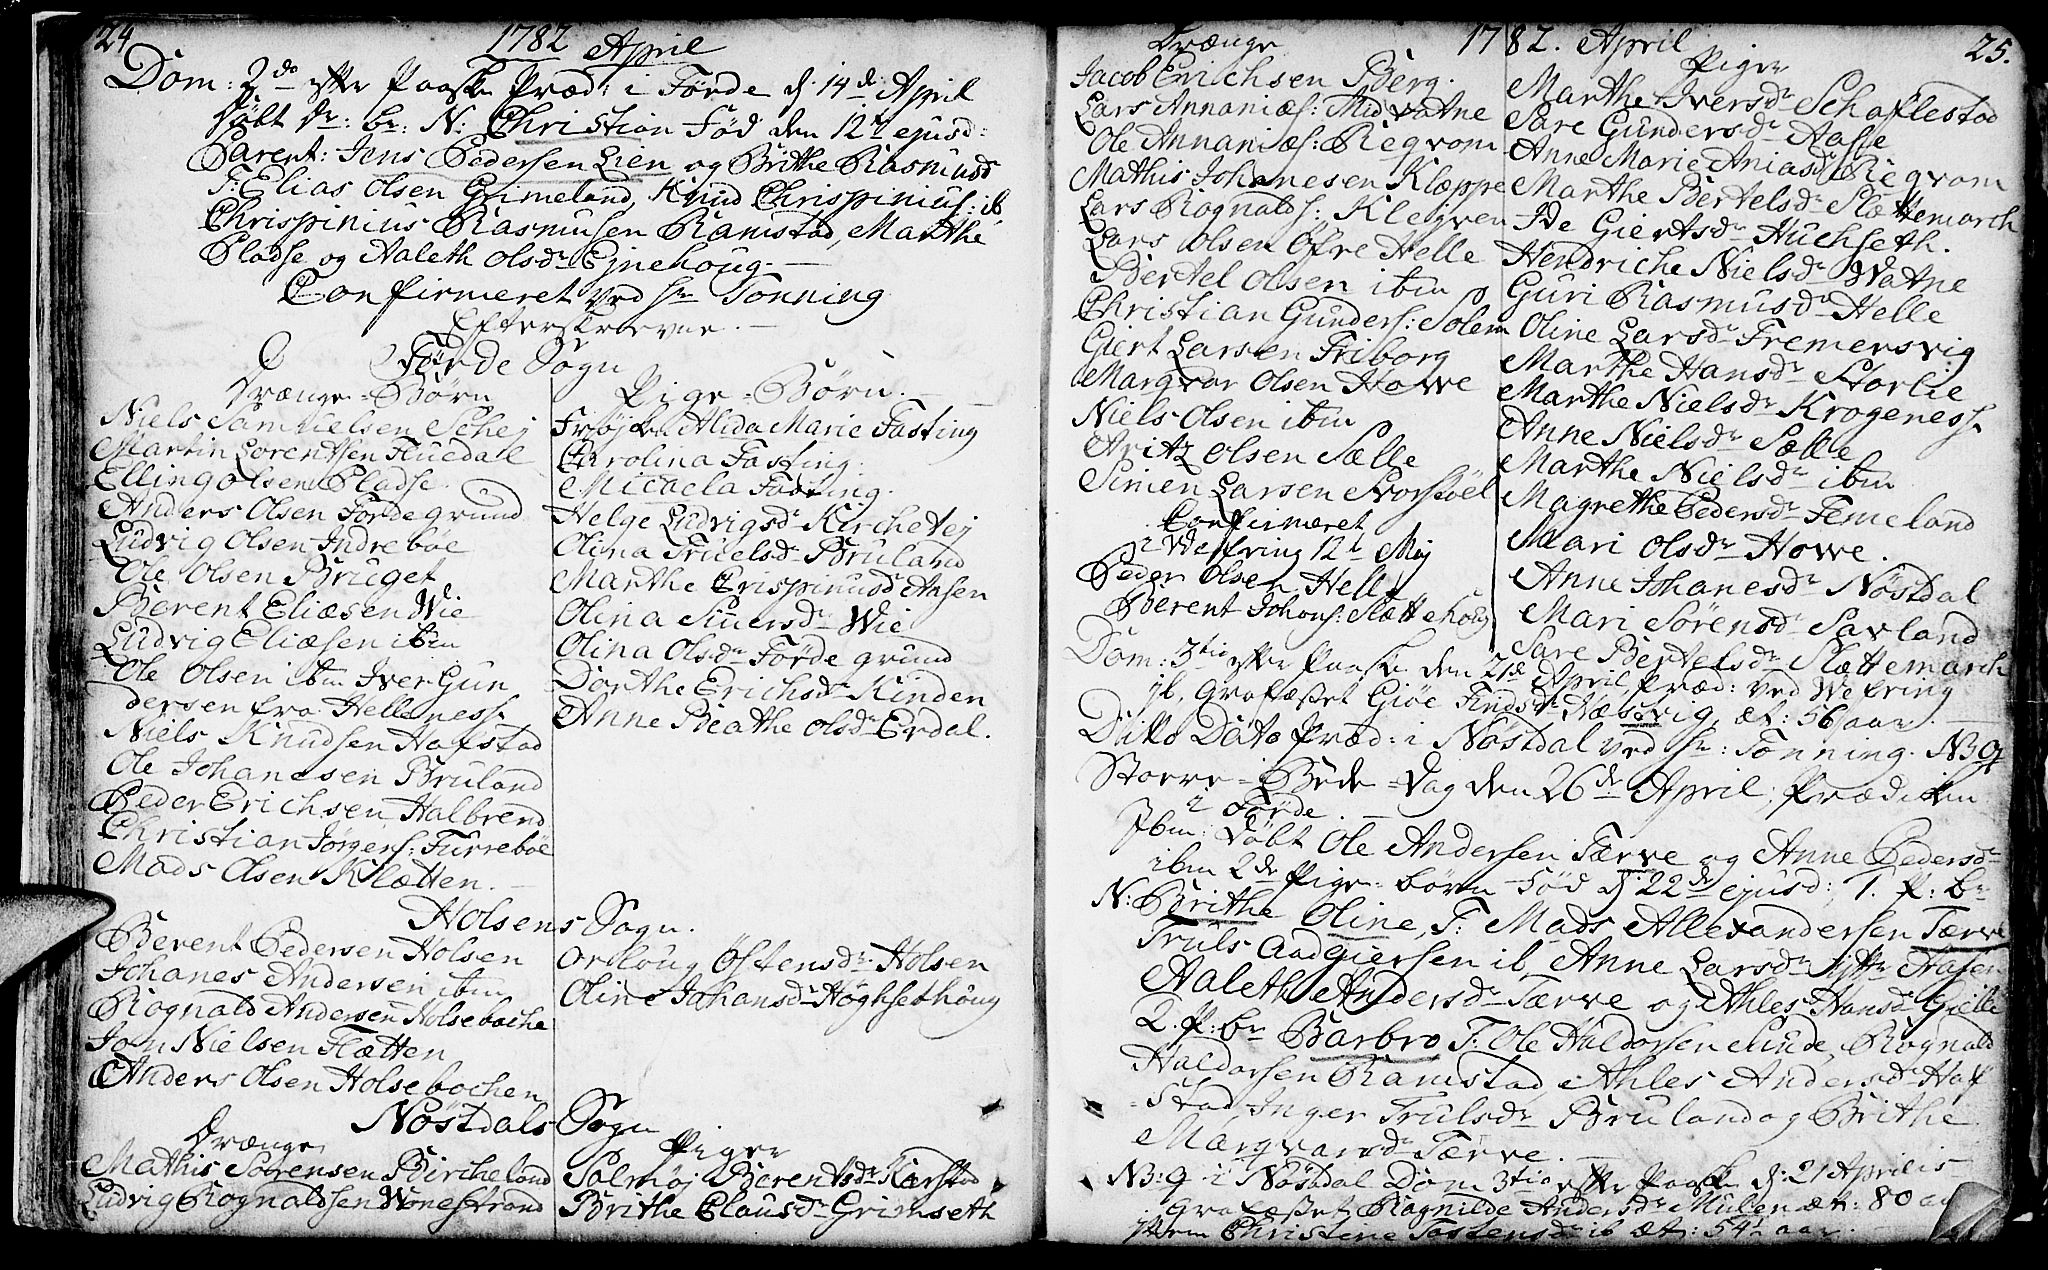 24
1782 April
Dom: 2do efter Paaske Præd: i Förde d: 14de April
Döbt Dr: br: N: Christian Föd den 12te ejusd:
Parent: Jens Pedersen Lien og Brithe Rasmusd
F: Elias Olsen Grimeland, Knud Chrispinius: ib
Chrispinius Rasmusen Ramstad, Marthe
Pladse og Aaleth Olsdr Ejnehoug.
Confirmeret ved Hr Tonning
Efterskrevne.
Förde Sogn
Drænge-Börn
Niels Samuelsen Schej
Martin Lorentsen Huedal
Elling Olsen Pladse
Anders Olsen Förde grund
Ludvig Olsen Indreböe
Ole Olsen Bruget
Berent Eliæsen Wie
Ludvig Eliæsen ibm
Ole Olsen ibm Iver Gun
dersen fra Helleness.
Niels Knudsen Hafstad
Ole Johannesen Bruland
Peder Erichsen Halbrend
Christian Jörgens: Furreböe
Mads Olsen Klætten.
Pige-Börn.
Fröjk Alida Marie Fasting
Carolina Fasting.
Micaela Fasting.
Helge Ludvigsdr Kirchevej
Olina Truelsdr Bruland
Marthe Crispinusd Aasen
Olina Siversdr Wie
Olina Olsdr Förde grund
Dorthe Erichsdr Kinden
Anne Beathe Olsdr Erdal.
Holsens Sogn.
Berent Pedersen Holsen
Johanes Andersen ibm
Rognald Andersen Holsebache
Jon Nielsen Flætten
Anders Olsen Holsebochen
Orloug Östensdr Holsen
Oline Johansdr Höghsethoug
Nöstdals Sogn
Drænge
Mathis Sörensen Bircheland
Ludvig Rognaldsen Wonestrand
Piger
Solmöj Berentsdr Karstad
Brithe Clausdr Grimseth
1782. April
25.
Drænge
Jacob Erichsen Berg.
Lars Annaniæs: Midvatne
Ole Annaniæs: Reqvam
Mathis Johanesen Klæppe
Lars Rognalds: Klejven
Lars Olsen Öfre Helle
Bertel Olsen ibm
Christian Gunders: Solem
Giert Larsen Friborg
Marqvar Olsen Howe
Niels Olsen ibm
Fritz Olsen Sælle
Simen Larsen Storstöel
Confirmeret
i Wefring 12te Mej
Peder Olsen Helle
Berent Johans: Slættehoug
Piger
Marthe Iversdr Schaflestad
Sare Gundersdr Aasse
Anne Marie Aniasdr Reqvam
Marthe Bertelsdr Slættemarch
Ide Giertsdr Huchseth.
Hendriche Nielsdr Watne
Guri Rasmusdr Helle
Oline Larsdr Fremersvig
Marthe Hansdr Storlie
Marthe Nielsdr Krogeness.
Anne Nielsdr Sælle
Marthe Nielsdr ibm
Magrethe Pedersdr Femeland
Mari Olsdr Howe.
Anne Johanesdr Nöstdal
Mari Sörensdr Savland
Sare Bertelsdr Slættemarch
Dom: 3tio efter Paaske den 21de April Præd: ved Wefring
ib. Grafæstet Giöe Findsdr Næsvig, æt: 56 aar.
Ditto Dato Præd: i Nöstdal ved Hr: Tonning. NB 9
Storre-Bede-Dag den 26de April; Prædiken
i Förde.
Ibm: Döbt Ole Andersen Tærve og Anne Pedersdr
ibm 2de Pige-börn Föd d: 22de ejusd: 1. P: br
N: Brithe Oline, F: Mads Allexandersen Tærve
Truls Andgiersen ib Anne Larsdr Trasen
Aaleth Andersdr Tærve og Ahles Hansdr Gielle
2. P: br Barbro F: Ole Haldorsen Sunde, Rognald
Haldorsen Ramstad, Ahles Andersdr Haf
stad, Inger Trulsdr Bruland og Brithe
Marqvarsdr Tærve.
NB: 9 i Nöstdal Dom 3tio efter Paaske d: 21 Aprilis
Grafæstet Ragnilde Andersdr Mulen æt: 80 aar
Item Christine Tostensdr ib æt: 54½ aar.